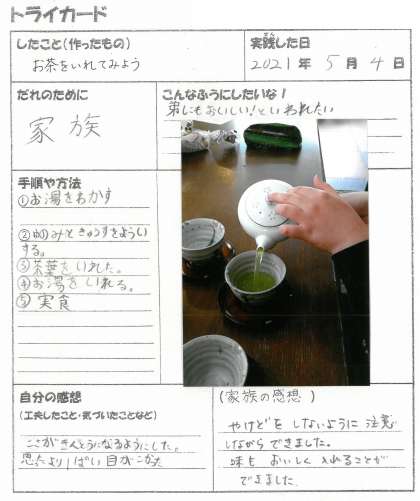 トライカード
したこと(作ったもの)
お茶をいれてみよう
実践した日
じっせん
2021 年 5 月 4 日
だれのために
家族
こんなふうにしたいな!
弟にもおいしい!といわれたい
手順や方法
①お湯をわかす
②ゆのみときゅうすをようい
する。
③茶葉をいれた。
④お湯をいれる。
⑤実食
自分の感想
(工夫したこと・気づいたことなど)
こさがきんとうになるようにした。
思ったより
(家族の感想)
やけどをしないように注意
しながらできました。
味もおいしく入れることが
できました。